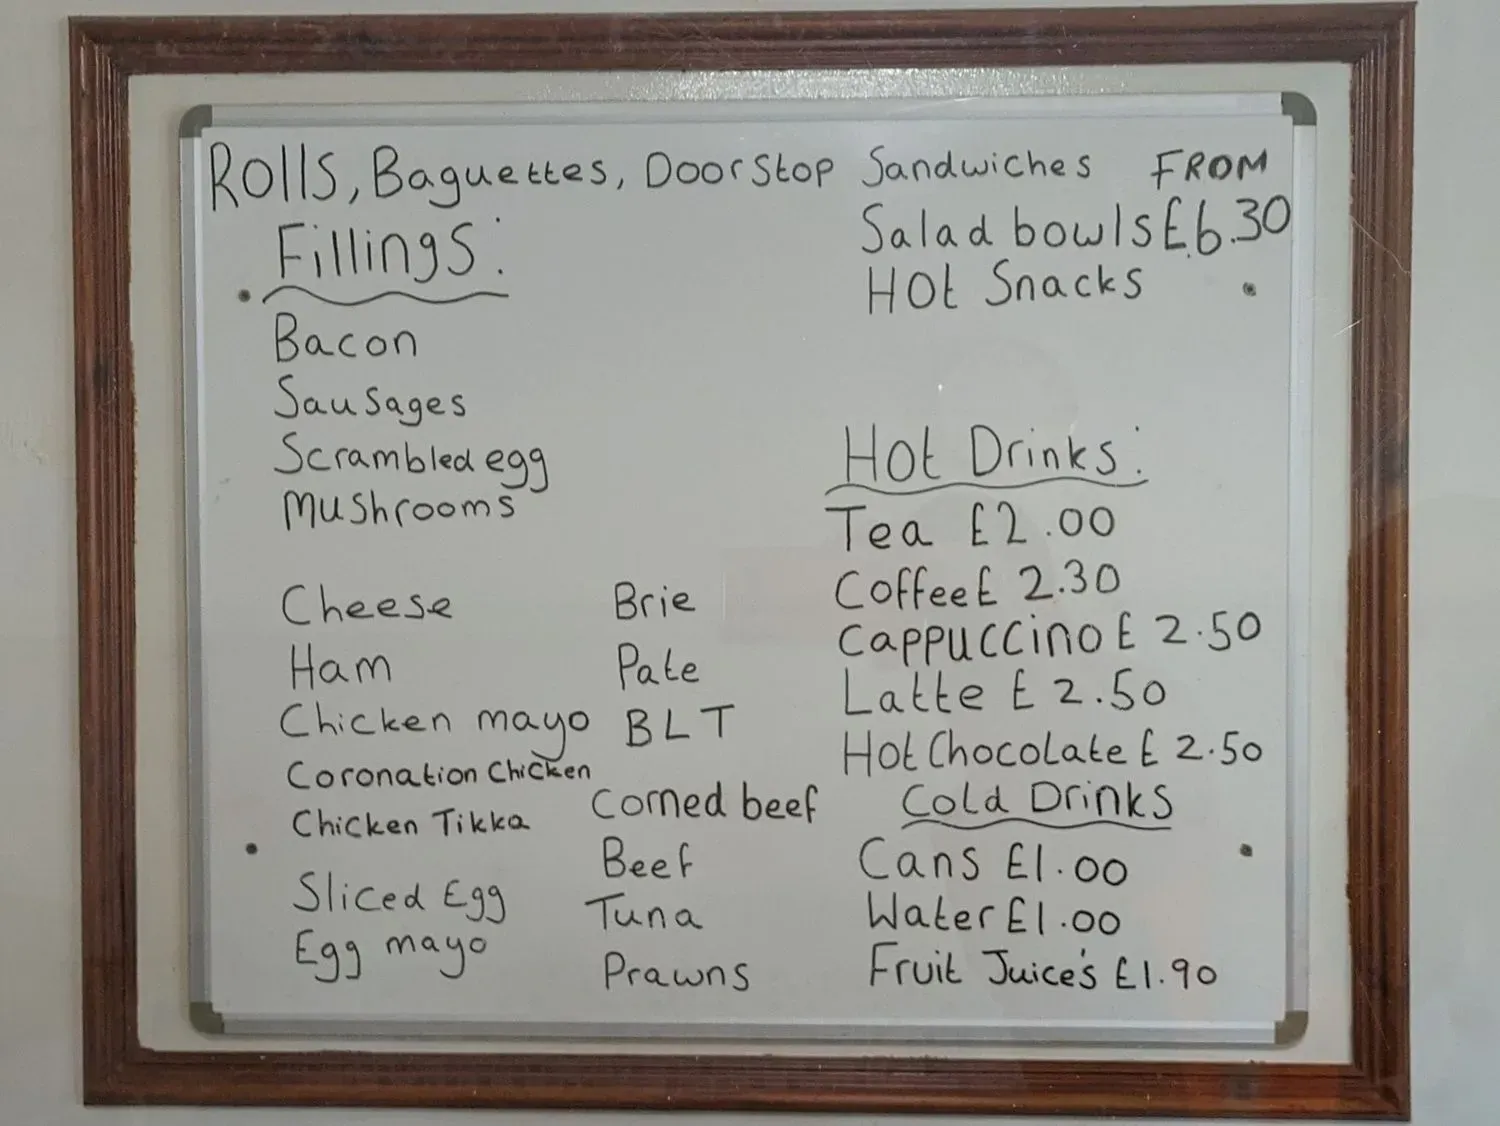 Rolls, Baguettes, Doorstop Sandwiches FROM
Salad bowls £6.30
Hot Snacks
Fillings:
Bacon
Sausages
Scrambled egg
Mushrooms
Cheese
Ham
Chicken mayo
Coronation Chicken
Chicken Tikka
Sliced Egg
Egg mayo
Brie
Pate
BLT
Corned beef
Beef
Tuna
Prawns
Hot Drinks:
Tea £2.00
Coffee £2.30
Cappuccino £2.50
Latte £2.50
Hot Chocolate £2.50
Cold Drinks
Cans £1.00
Water £1.00
Fruit Juice's £1.90